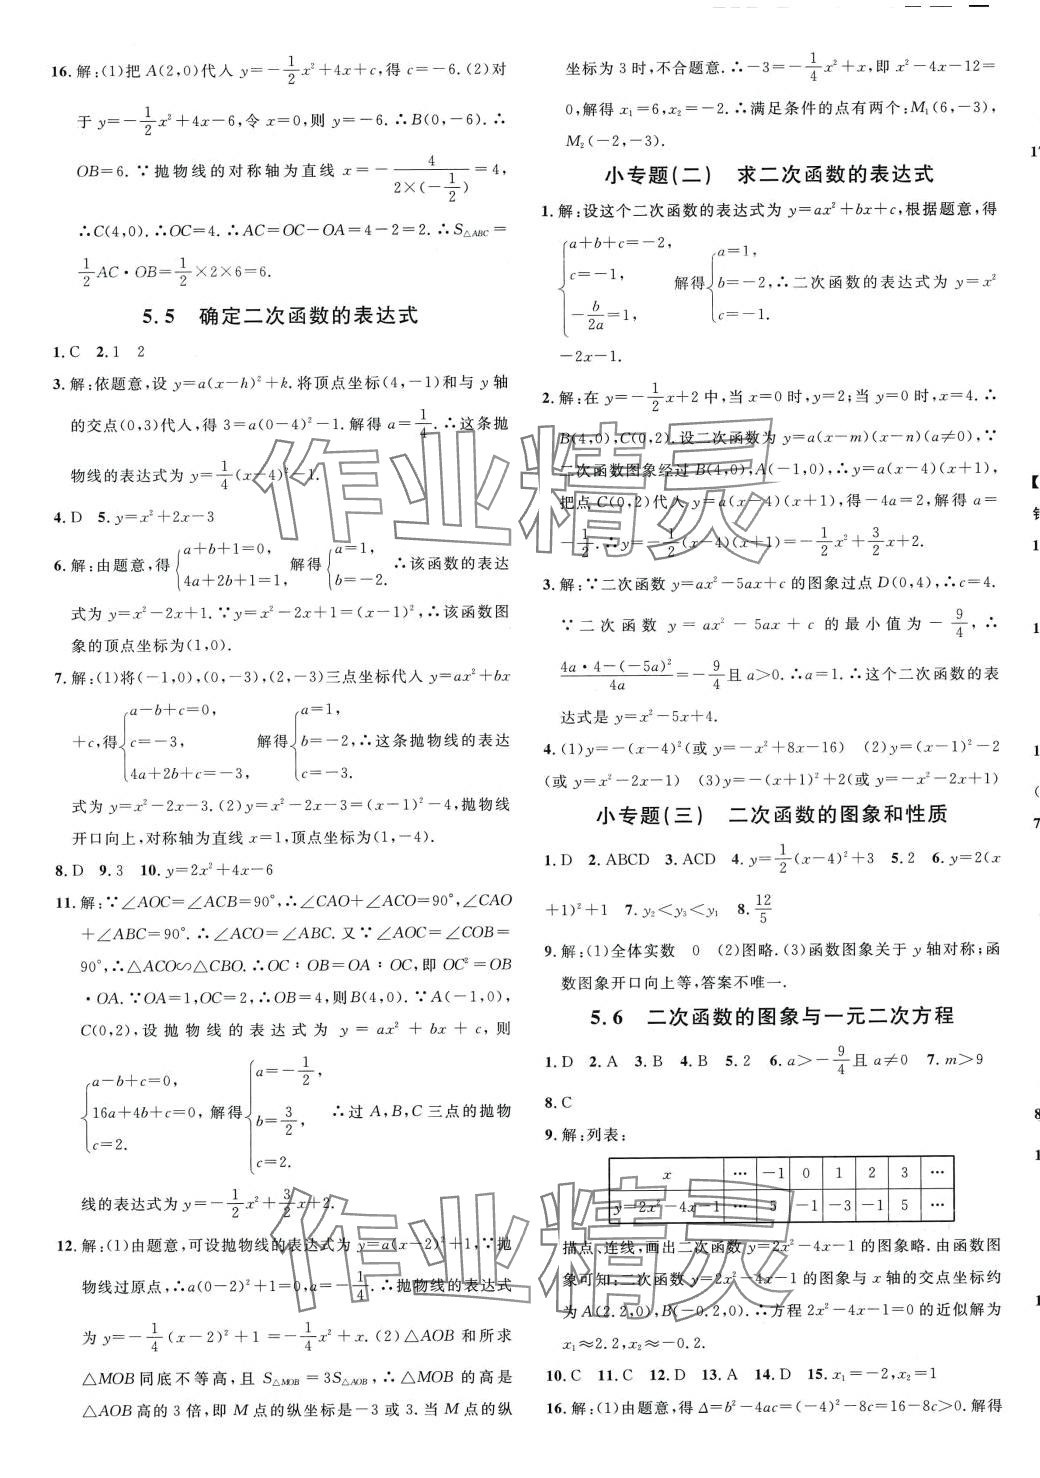 16.解:(1)把 A(2,0)代入 y=-1/2x²+4x+c,得 c=-6.(2)对
于 y=-1/2x²+4x-6,令 x=0,则 y=-6.∴B(0,-6).∴
OB=6.∵抛物线的对称轴为直线 x=-4/(2×(-1/2))=4,
∴C(4,0).∴OC=4.∴AC=OC-OA=4-2=2.∴S△ABC=
1/2AC·OB=1/2×2×6=6.
5.5 确定二次函数的表达式
1.C 2.1 2
3.解:依题意,设 y=a(x-h)²+k.将顶点坐标(4,-1)和与 y 轴
的交点(0,3)代入,得 3=a(0-4)²-1.解得 a=1/4.∴这条抛
物线的表达式为 y=1/4(x-4)²-1.
4.D 5.y=x²+2x-3
6.解:由题意,得{a+b+1=0, 4a+2b+1=1, 解得{a=1, b=-2. ∴该函数的表达
式为 y=x²-2x+1.∵y=x²-2x+1=(x-1)²,∴该函数图
象的顶点坐标为(1,0).
7.解:(1)将(-1,0),(0,-3),(2,-3)三点坐标代入 y=ax²+bx
+c,得{a-b+c=0, c=-3, 4a+2b+c=-3, 解得{a=1, b=-2, c=-3. ∴这条抛物线的表达
式为 y=x²-2x-3.(2)y=x²-2x-3=(x-1)²-4,抛物线
开口向上,对称轴为直线 x=1,顶点坐标为(1,-4).
8.D 9.3 10.y=2x²+4x-6
11.解:∵∠AOC=∠ACB=90°,∴∠CAO+∠ACO=90°,∠CAO
+∠ABC=90°.∴∠ACO=∠ABC.又∵∠AOC=∠COB=
90°,∴△ACO∽△CBO.∴OC∶OB=OA∶OC,即 OC²=OB
·OA.∵OA=1,OC=2,∴OB=4,则B(4,0).∵A(-1,0),
C(0,2),设抛物线的表达式为 y=ax²+bx+c,则
{a-b+c=0, 16a+4b+c=0, c=2. 解得{a=-1/2, b=3/2, c=2. ∴过 A,B,C 三点的抛物
线的表达式为 y=-1/2x²+3/2x+2.
12.解:(1)由题意,可设抛物线的表达式为 y=a(x-2)²+1,∵抛
物线过原点,∴a(0-2)²+1=0,a=-1/4.∴抛物线的表达式
为 y=-1/4(x-2)²+1=-1/4x²+x.(2)△AOB 和所求
△MOB 同底不等高,且 S△MOB=3S△AOB,∴△MOB 的高是
△AOB 高的 3 倍,即 M 点的纵坐标是-3 或 3.当 M 点的纵
坐标为 3 时,不合题意.∴-3=-1/4x²+x,即 x²-4x-12=
0,解得 x₁=6,x₂=-2.∴满足条件的点有两个:M₁(6,-3),
M₂(-2,-3).
小专题(二) 求二次函数的表达式
1.解:设这个二次函数的表达式为 y=ax²+bx+c,根据题意,得
{a+b+c=-2, c=-1, -b/2a=1, 解得{a=1, b=-2, c=-1. ∴二次函数的表达式为 y=x²
-2x-1.
2.解:在 y=-1/2x+2 中,当 x=0 时,y=2;当 y=0 时,x=4.∴
B(4,0),C(0,2).设二次函数为 y=a(x-m)(x-n)(a≠0),∵
二次函数图象经过 B(4,0),A(-1,0),∴y=a(x-4)(x+1),
把点 C(0,2)代入 y=a(x-4)(x+1),得-4a=2,解得 a=
-1/2.∴y=-1/2(x-4)(x+1)=-1/2x²+3/2x+2.
3.解:∵二次函数 y=ax²-5ax+c 的图象过点 D(0,4),∴c=4.
∵二次函数 y=ax²-5ax+c 的最小值为-9/4,∴
(4a·4-(-5a)²)/4a=-9/4且 a>0.∴a=1.∴这个二次函数的表
达式是 y=x²-5x+4.
4.(1)y=-(x-4)²(或 y=-x²+8x-16) (2)y=(x-1)²-2
(或 y=x²-2x-1) (3)y=-(x+1)²+2(或 y=-x²-2x+1)
小专题(三) 二次函数的图象和性质
1.D 2.ABCD 3.ACD 4.y=1/2(x-4)²+3 5.2 6.y=2(x
+1)²+1 7.y₂<y₃<y₁ 8.12/5
9.解:(1)全体实数 0 (2)图略.(3)函数图象关于 y 轴对称;函
数图象开口向上等,答案不唯一.
5.6 二次函数的图象与一元二次方程
1.D 2.A 3.B 4.B 5.2 6.a>-9/4且 a≠0 7.m>9
8.C
9.解:列表:
x … -1 0 1 2 3 …
y=2x²-4x-1 … 5 -1 -3 -1 5 …
描点、连线,画出二次函数 y=2x²-4x-1 的图象略.由函数图
象可知:二次函数 y=2x²-4x-1 的图象与 x 轴的交点坐标约
为 A(2.2,0),B(-0.2,0).∴方程 2x²-4x-1=0 的近似解为
x₁≈2.2,x₂≈-0.2.
10.C 11.C 12.D 13.A 14.D 15.x₁=-2,x₂=1
16.解:(1)由题意,得 Δ=b²-4ac=(-4)²-8c=16-8c>0.解得
作业精灵
作业精灵